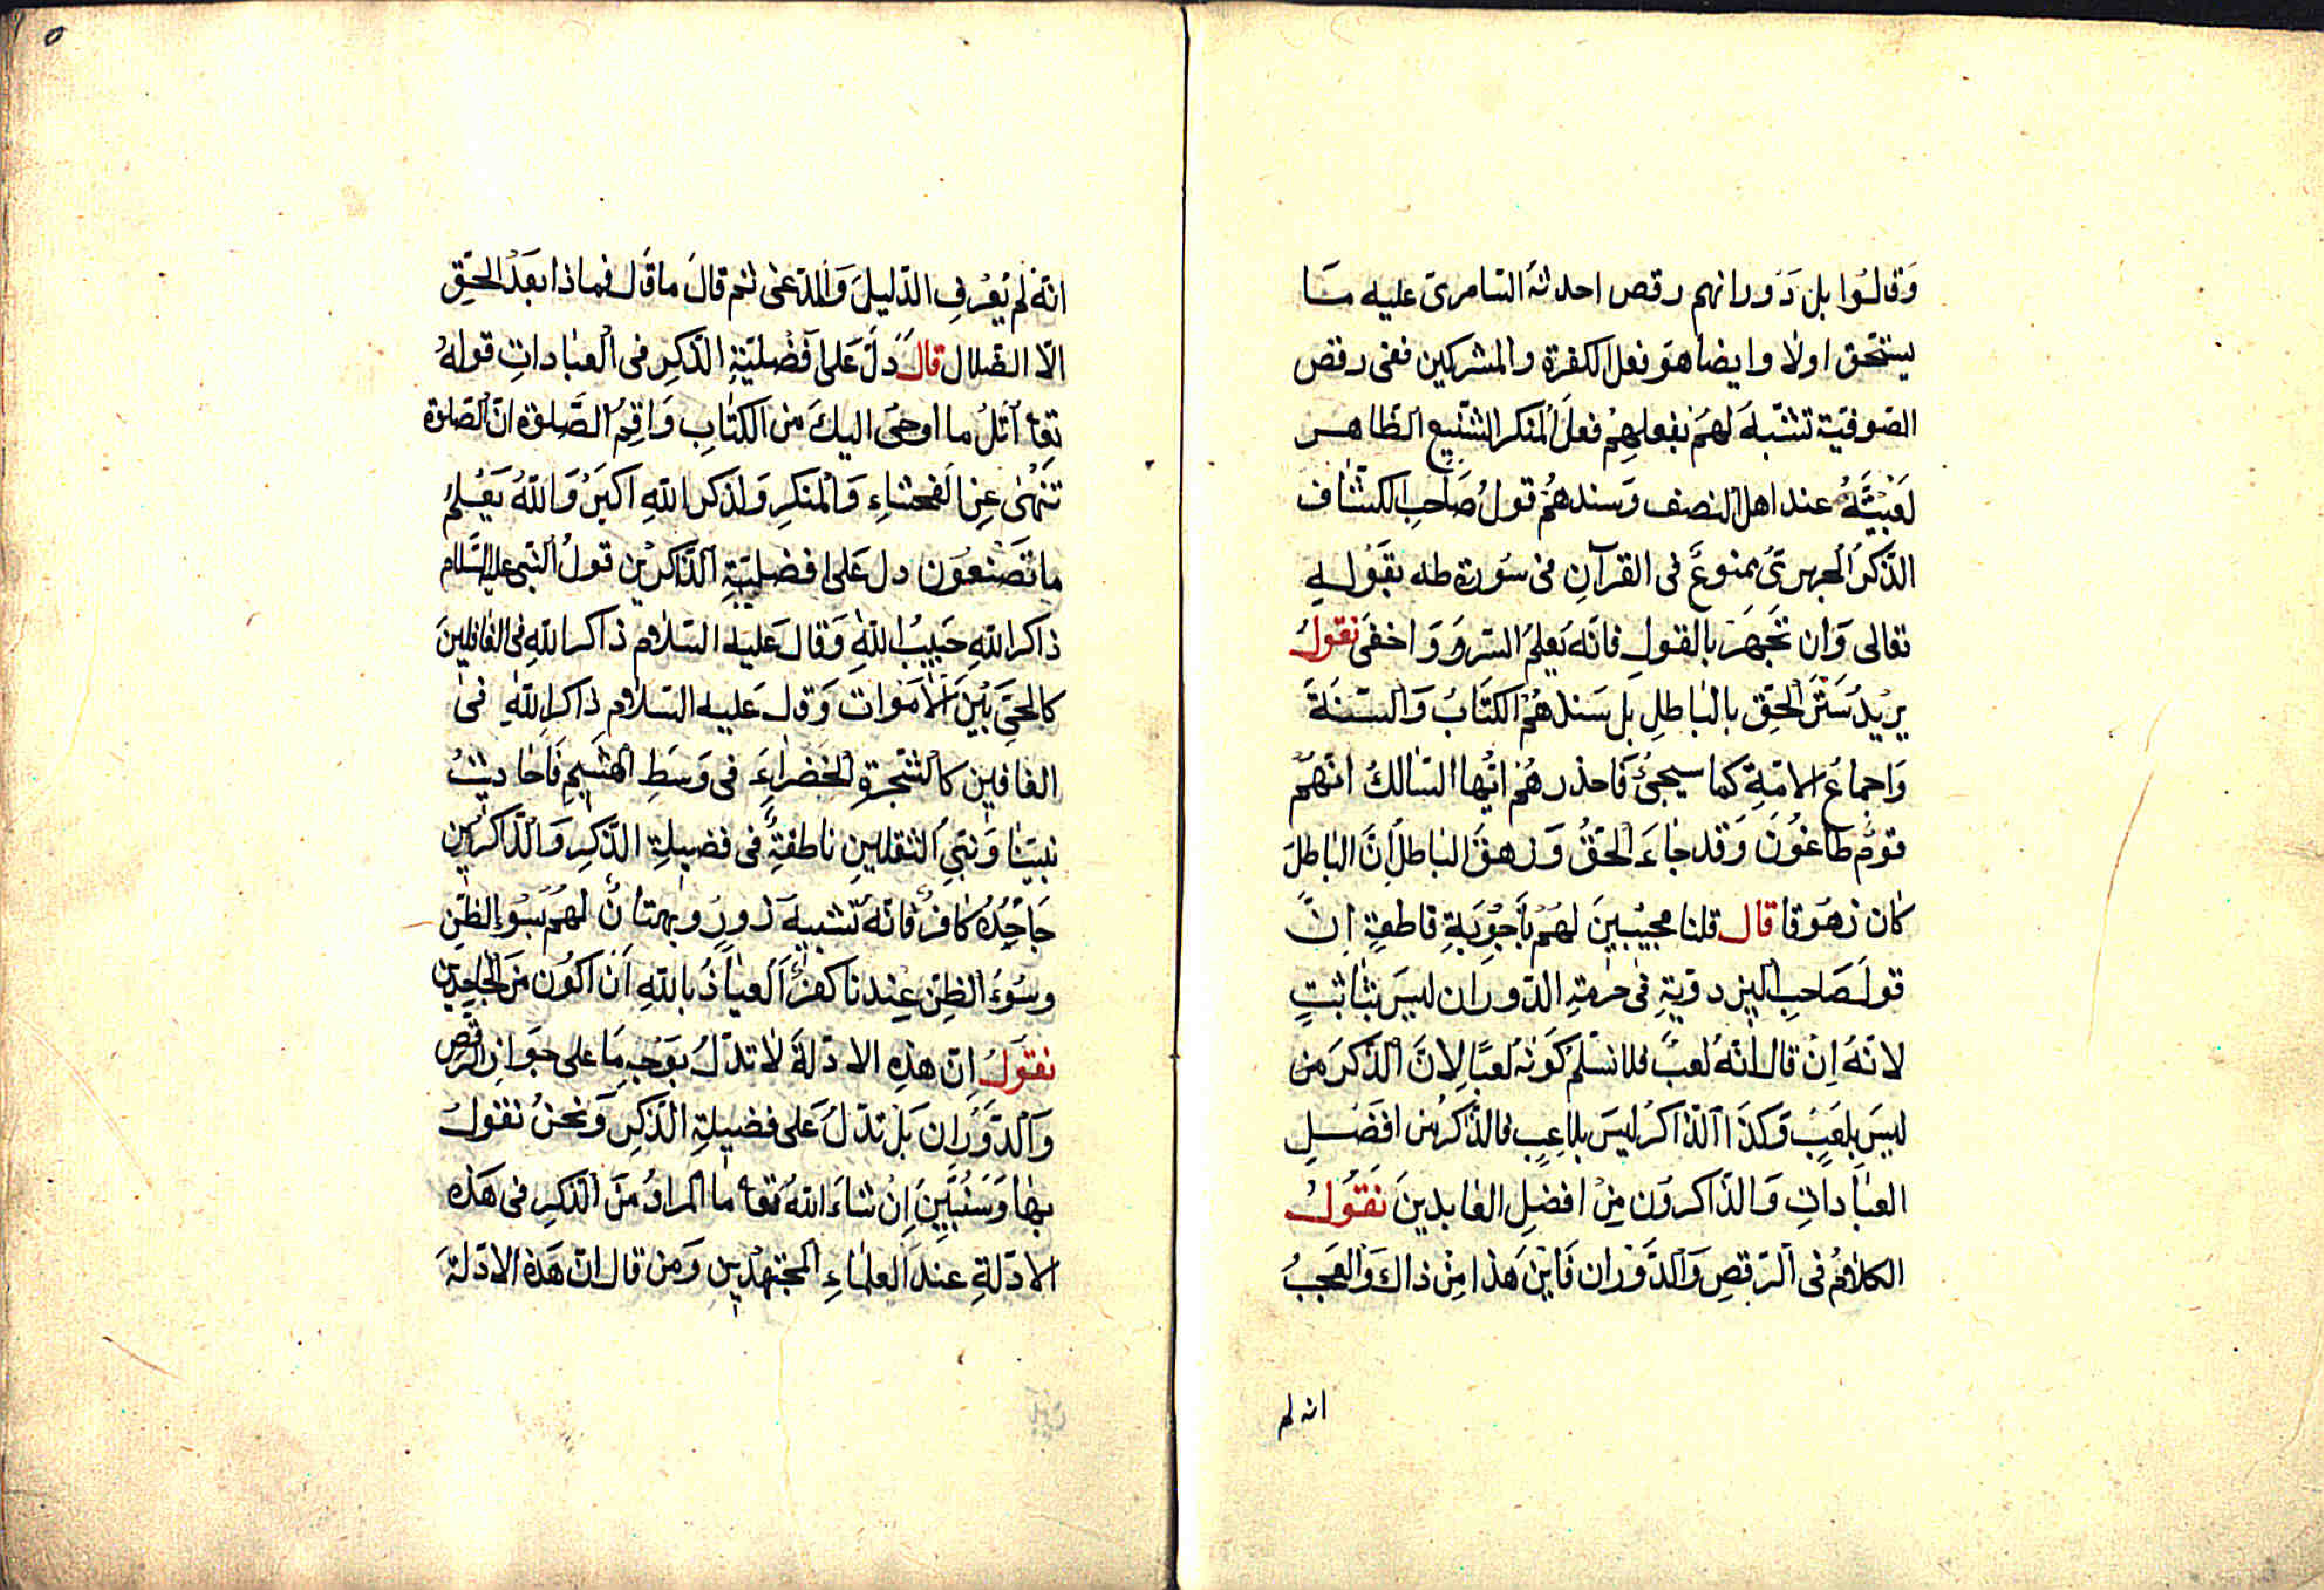 وَقالُوا بل دَورانهم رقص احدثهُ السّامرى عليه مَا
يستحق اولا وايضا هو فعل الكفرة والمشركين ففى رقص
الصّوفيّة تشبّهٌ لهُم بفعلهِم فعلَ المنكر الشّنيع الظّاهر
عند اهل النصف وَسندهُم قولُ صَاحب الكشّاف
الذّكرُ الجهرىّ ممنوعٌ فى القرآنِ فى سُورة طه بقَوله
تعالى وَان تَجهَر بالقول فانّه يَعلم السّر وَاخفَى نقولُ
يرُيدُ سَترَ الحقّ بالباطلِ بَل سَندهُمُ الكتَابُ وَالسّنَةَ
وَاجماعُ الامّة كما سيجئُ فَاحذرهُم ايّها السّالكُ انّهُم
قومٌ طاغُونَ وَقد جاءَ الحَقُّ وَزهقَ الباطلُ انّ الباطلَ
كان زهوقا قال قلنا مجيبينَ لهُم بِاَجوِبَةٍ قاطعةٍ اِنّ
قولَ صَاحبِ البزدويّةِ فى حرمةِ الدّوران ليسَ بثابتٍ
لانّهُ اِن قال انّهُ لعبٌ فلا نسَلّم كَونهُ لعبًا لِانّ الذّكرَ من
ليسَ بلعَبٍ وَكذَا الذّاكرُ ليسَ بلاعِبٍ فالذّكرُ من افضَلِ
العبَاداتِ وَالذّاكرون مِن افضلِ العابدينَ نقُولُ
الكلامُ فى الرّقصِ وَالدَّوَران فَاين هَذا مِن ذاكَ وَالعَجبُ
انه لم
انّهُ لم يَعْرفِ الدّليلَ وَالمدّعى ثم قالَ ما قَال فماذا بَعدَ الحقِّ
الّا الضّلال قالَ دلّ عَلى اَفضليّةِ الذّكرِ فى العباداتِ قولهُ
تعا اُتلُ ما اوحىَ اليكَ من الكتابِ وَاَقِمِ الصّلوة انّ الصّلوة
تَنهى عَنِ الفحشاءِ وَالمنكرِ وَلذكر اللهِ اكبَرُ وَاللهُ يَعلمُ
ما تَصنعُون دل عَلى افضليّةِ الذّاكرين قولُ النّبى عليه السّلام
ذاكر اللهِ حَبيبُ اللهِ وَقالَ عليه السّلام ذاكر اللهِ فى الغافلينَ
كالحىّ بَينَ الاَموات وَقال عَليه السّلام ذاكر اللهِ فى
الغافلين كالشّجرةِ الخضراءِ فى وَسَطِ الهشيمِ فَاحاديثُ
نبيّنا وَنبىّ الثقلينِ ناطقةٌ فى فضيلةِ الذّكرِ وَالذّاكرين
جَاحِدُهُ كافرٌ فانّهُ تشبيهَ زورٍ وبهتانٌ لهُم بسُوءِ الظّنِ
وسُوءُ الظنِّ عِندنا كفرٌ العياذُ باللهِ اَن اكُون منَ الجاحدين
نقولُ اِنّ هذهِ الادلّةَ لا تدلّ بوَجهٍ مَا على جوَازِ الرقص
وَالدَّوَرَان بَل تدلّ عَلى فضيلةِ الذّكرِ وَنحنُ نقولُ
بها وَسَنُبَيّنُ اِن شاءَ اللهُ تعا ما المرادُ منَ الذّكرِ فى هَذه
الادلّةِ عندَ العلماءِ المجتهدين وَمَن قال انّ هَذه الادلّةَ